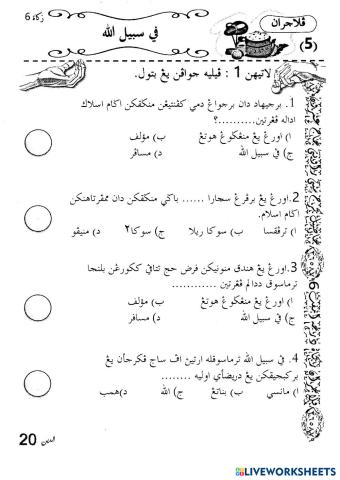 زكاة 6
ڤلاجران (5)
في سبيل الله
لاتيهن 1 : ڤيليه جواڤن يڠ بتول.
1. برجيهاد دان برجواڠ دمي كڤنتيڠن منڬقكن اݢام اسلام
اداله ڤڠرتين..........؟
ا) اورڠ يڠ منڠݢوڠ هوتڠ
ب) مؤلف
ج) في سبيل الله
د) مسافر
2. اورڠ يڠ برڤرڠ سچارا ...... باݢي منڬقكن دان ممڤرتاهنكن
اݢام اسلام.
ا) ترڤقسا
ب) سوك ريلا
ج) سوك٢
د) منيڤو
3. اورڠ يڠ هندق منونايكن فرض حج تتاڤي ككورڠن بلنجا
ترماسوق ددالم ڤڠرتين ............
ا) اورڠ يڠ منڠݢوڠ هوتڠ
ب) مؤلف
ج) في سبيل الله
د) مسافر
4. في سبيل الله ترماسوقله ارتين اڤ ساج ڤكرجأن يڠ
بركبجيقكن يڠ دريضأي اوليه ........
ا) مانسي
ب) بناتڠ
ج) الله
د) همب
الدين 20
LIVEWORKSHEETS